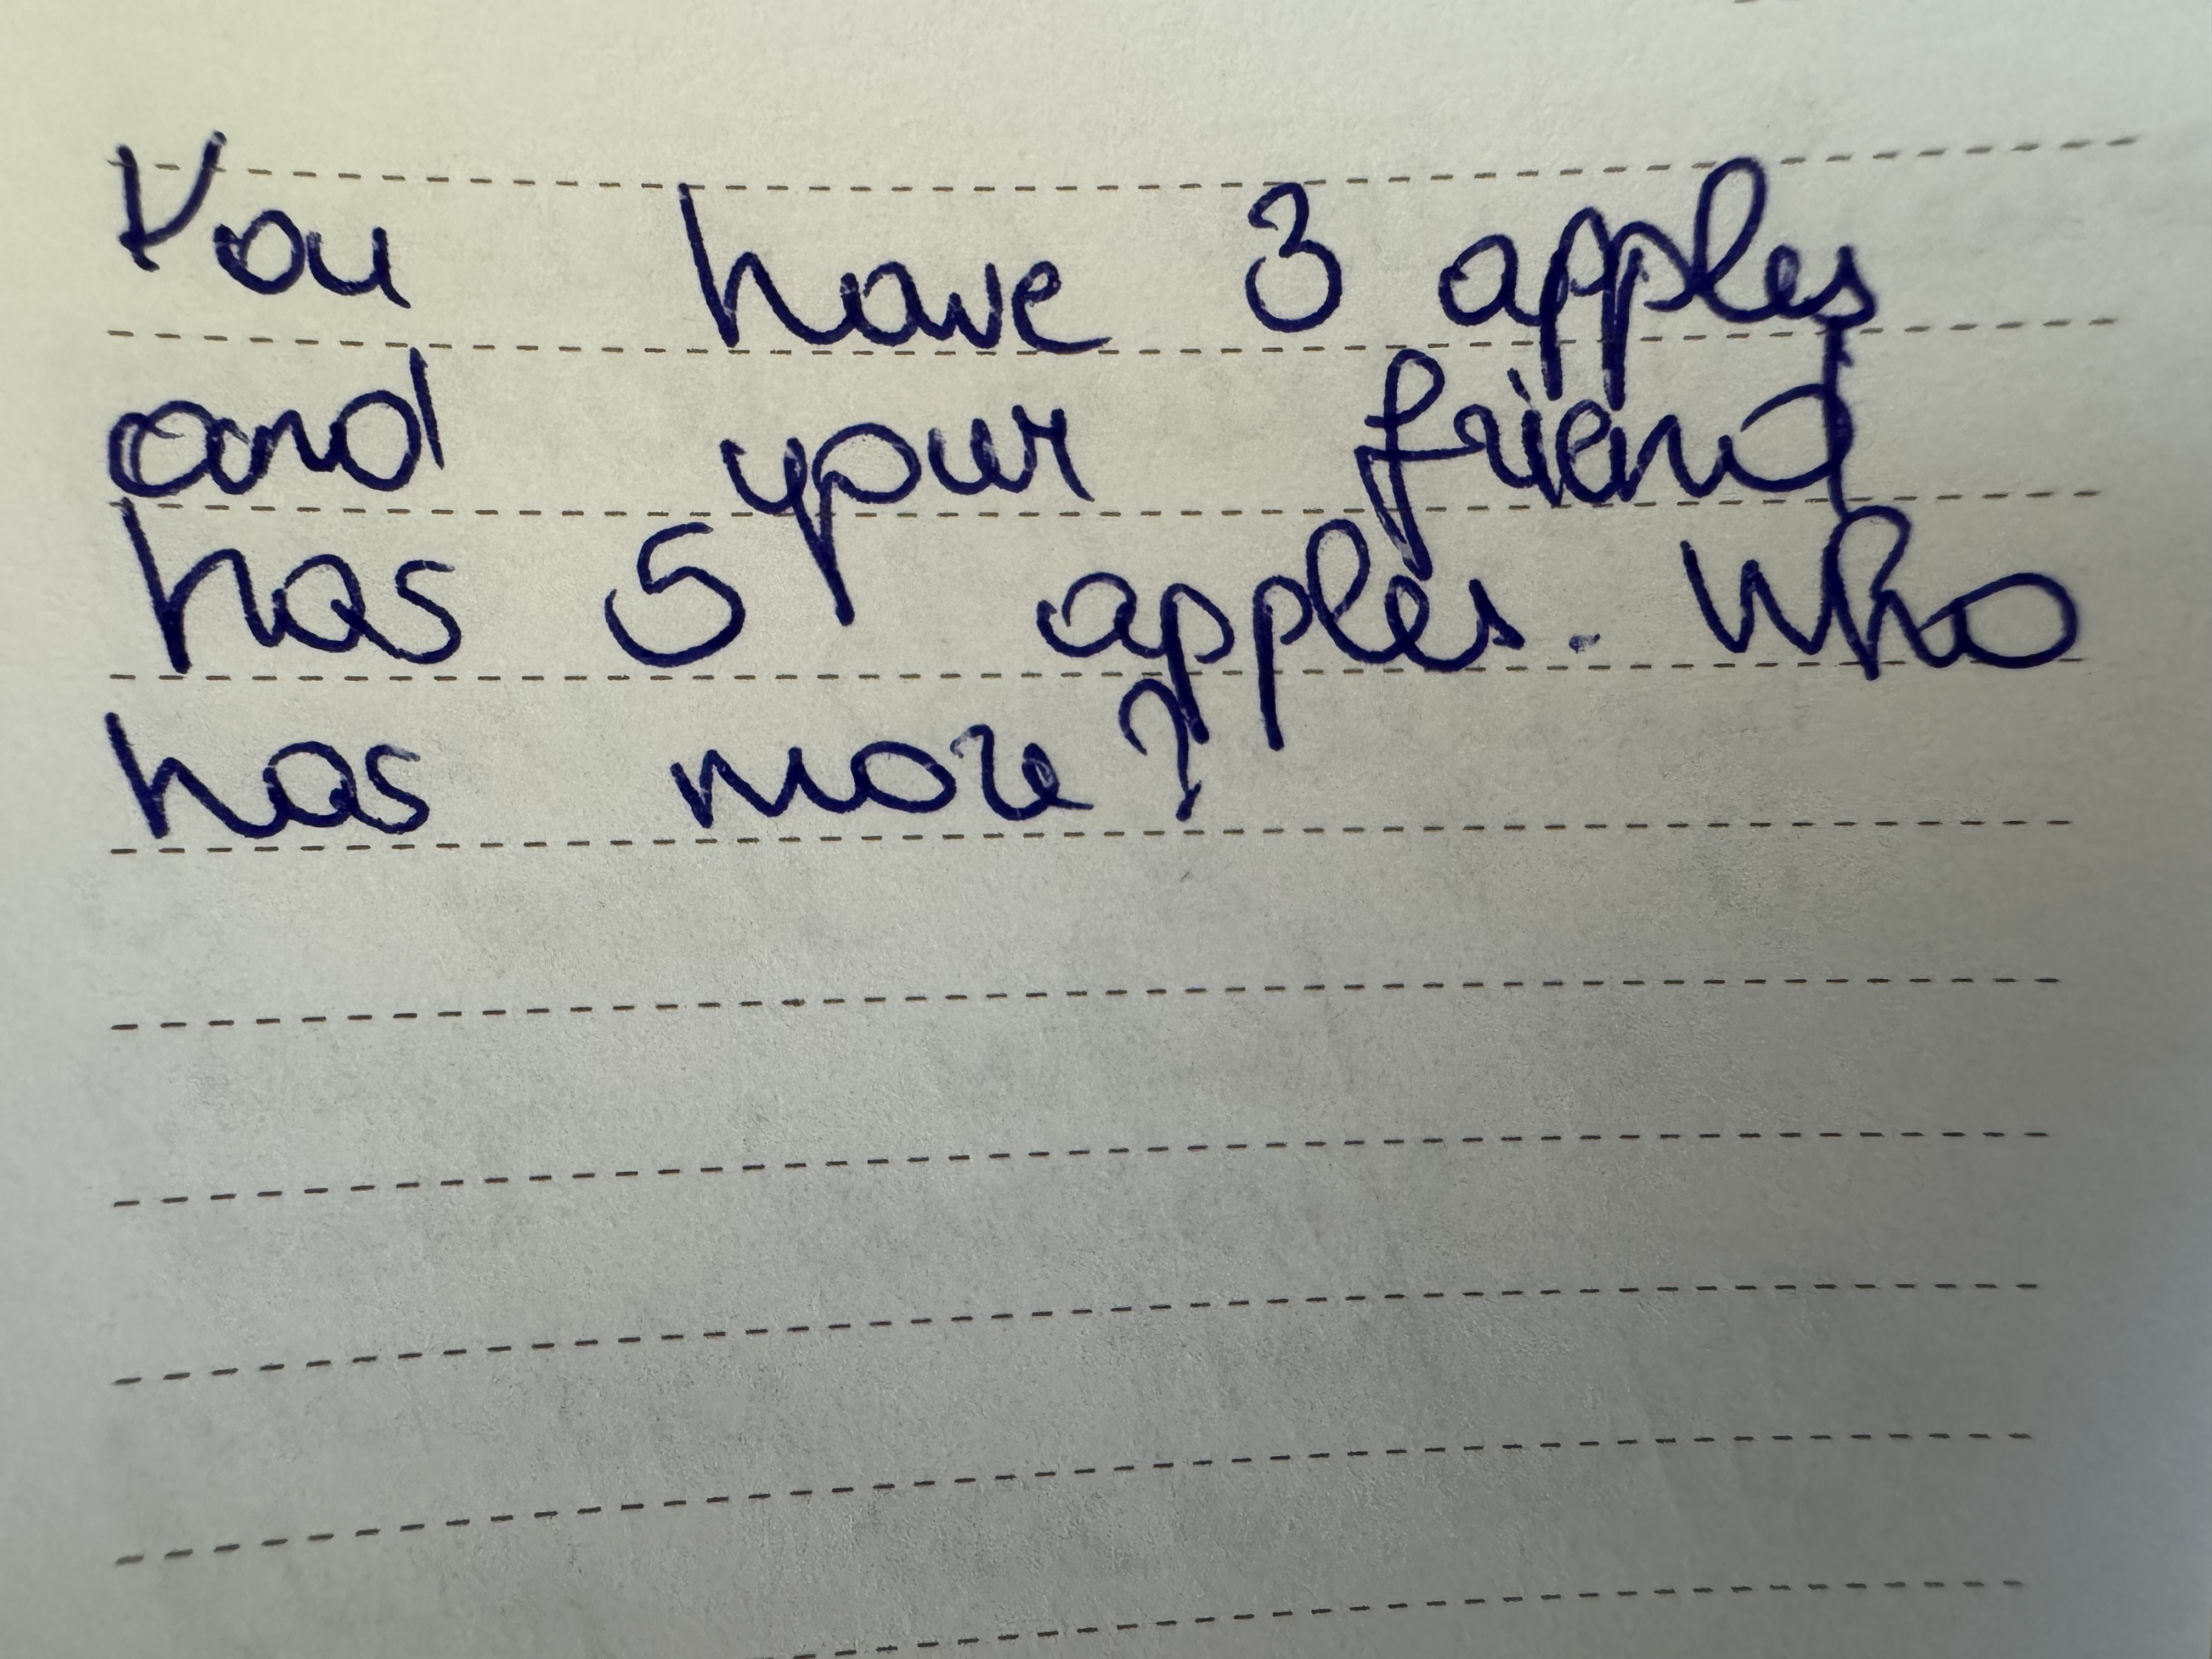 You have 3 apples
and your friend
has 5 apples. Who
has more?